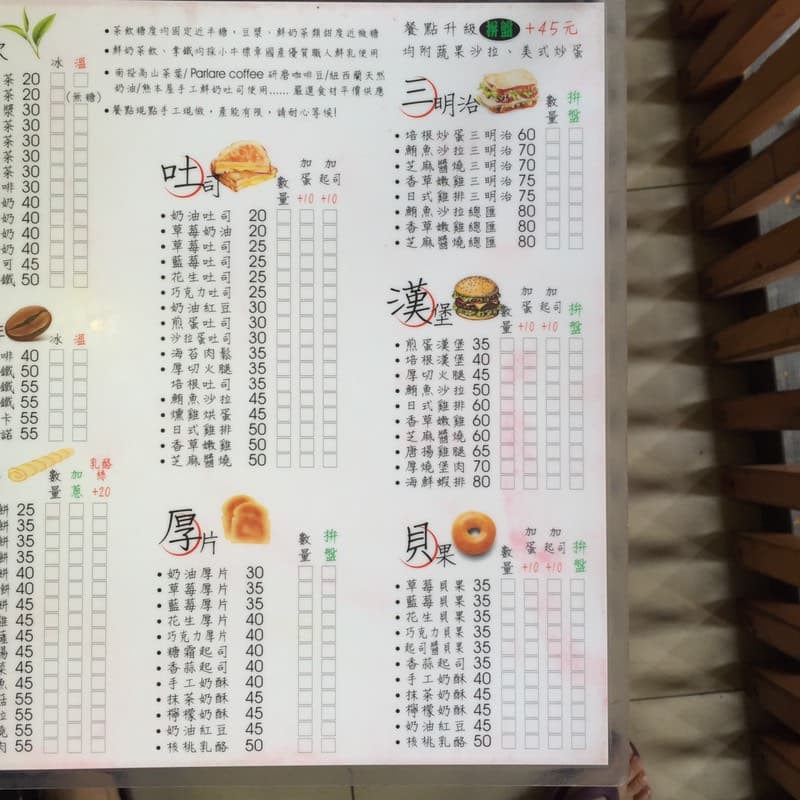 •茶飲糖度均固定近半糖，豆漿、鮮奶茶類甜度近微糖
•鮮奶茶飲、拿鐵均採小牛標章國產優質職人鮮乳使用
•南投高山茶葉/ Parlare coffee 研磨咖啡豆/紐西蘭天然
奶油/熊本屋手工鮮奶吐司使用......嚴選食材平價供應
•餐點現點手工現做，產能有限，請耐心等候!
飲
冰 溫
茶 20
茶 20 (無糖)
漿 30
茶 30
茶 30
茶 30
茶 30
啡 30
奶 40
奶 40
奶 40
奶 40
可 45
鐵 50
冰 溫
啡 40
鐵 50
鐵 55
鐵 55
卡 55
諾 55
數量 加蔥 乳酪絲+20
餅 25
餅 35
餅 35
餅 35
餅 40
餅 40
餅 45
雞 45
薩 45
腸 45
菜 45
魚 45
菇 55
拉 55
燒 55
肉 55
吐司
數量 加蛋+10 加起司+10
•奶油吐司 20
•草莓奶油 20
•草莓吐司 25
•藍莓吐司 25
•花生吐司 25
•巧克力吐司 25
•奶油紅豆 30
•煎蛋吐司 30
•沙拉蛋吐司 30
•海苔肉鬆 35
•厚切火腿 35
培根吐司 35
•鮪魚沙拉 45
•燻雞烘蛋 45
•日式雞排 50
•香草嫩雞 50
•芝麻醬燒 50
厚片
數量 拼盤
•奶油厚片 30
•草莓厚片 35
•藍莓厚片 35
•花生厚片 40
•巧克力厚片 40
•糖霜起司 40
•香蒜起司 40
•手工奶酥 40
•抹茶奶酥 45
•檸檬奶酥 45
•奶油紅豆 45
•核桃乳酪 50
餐點升級 拼盤 +45元
均附蔬果沙拉、美式炒蛋
三明治
數量 拼盤
•培根炒蛋三明治 60
•鮪魚沙拉三明治 70
•芝麻醬燒三明治 70
•香草嫩雞三明治 75
•日式雞排三明治 75
•鮪魚沙拉總匯 80
•香草嫩雞總匯 80
•芝麻醬燒總匯 80
漢堡
數量 加蛋+10 加起司+10 拼盤
•煎蛋漢堡 35
•培根漢堡 40
•厚切火腿 45
•鮪魚沙拉 50
•日式雞排 60
•香草嫩雞 60
•芝麻醬燒 60
•唐揚雞腿 65
•厚燒堡肉 70
•海鮮蝦排 80
貝果
數量 加蛋+10 加起司+10 拼盤
•草莓貝果 35
•藍莓貝果 35
•花生貝果 35
•巧克力貝果 35
•起司醬貝果 35
•香蒜起司 35
•手工奶酥 40
•抹茶奶酥 45
•檸檬奶酥 45
•奶油紅豆 45
•核桃乳酪 50